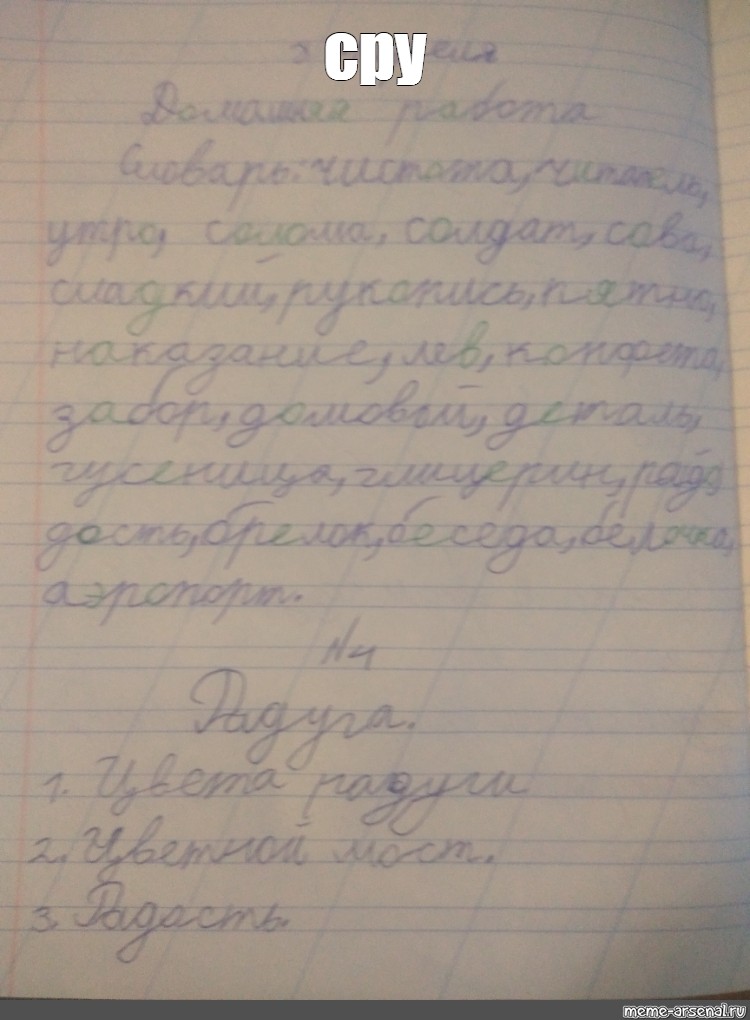 сру
Домашняя работа
Словарь: чистота, читатель,
утро, солома, солдат, сова,
сладкий, рукопись, пятно,
наказание, лев, конфета,
забор, домовый, деталь,
гусеница, глицерин, радо
дость, брелок, беседа, белочка,
аэропорт.
№4
Радуга.
1. Цвета радуги
2. Цветной мост.
3. Радость.
meme-arsenal.ru